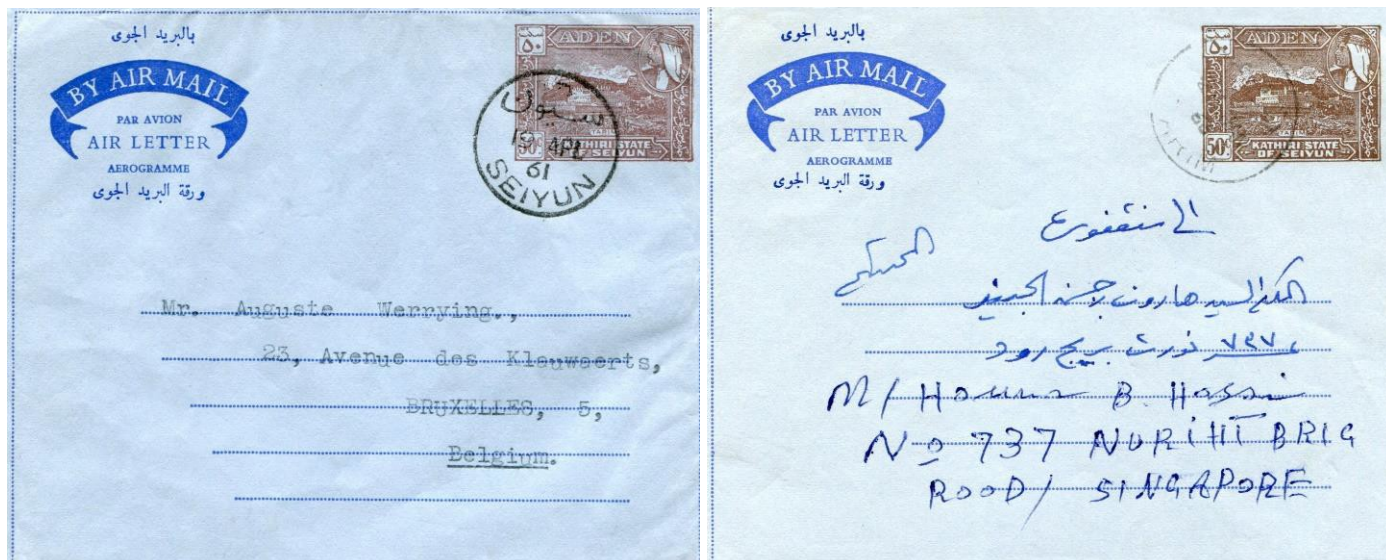 بالبريد الجوى
BY AIR MAIL
PAR AVION
AIR LETTER
AEROGRAMME
ورقة البريد الجوى
٥٠
ADEN
50c
KATHIRI STATE
OF SEIYUN
سيون
APL
61
SEIYUN
Mr. Auguste Werrying.,
23, Avenue des Klauwaerts,
BRUXELLES, 5,
Belgium.
بالبريد الجوى
BY AIR MAIL
PAR AVION
AIR LETTER
AEROGRAMME
ورقة البريد الجوى
٥٠
ADEN
TARIM
50c
KATHIRI STATE
OF SEIYUN
السيد هارون
رود
M/ B. Hassan
No 737 NORiHT BRIG
ROOD/ SINGAPORE